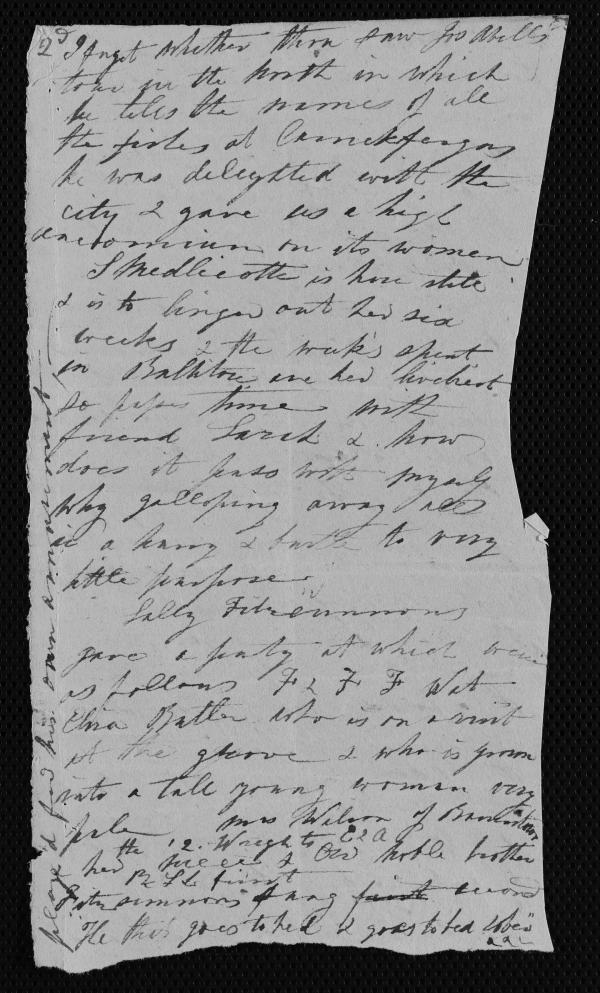 2d I forget whether thou saw Jos Abell's
tour in the North in which
he tells the names of all
the fishes at Carrickfergus
he was delighted with the
city & gave us a high
encomium on its women
S Medlicotte is here still
& is to linger out her six
weeks & the weeks spent
in are her liveliest
so passes time with
friend Sarah & how
does it pass with myself
why galloping away all
in a hurry & bustle to very
little purpose
Sally Fitzsimmons
gave a party at which were
as follows F & F F Wat
Eliza Butler who is on a visit
at the grove & who is grown
into a tall young woman very
pale Mrs Wilson of
the 2 Wrights E & A
her niece & Our noble brother
R S L first
Fitzsimmons sang first second
He that goes to bed & goes to bed sober
&c
pleas'd find his own amusement